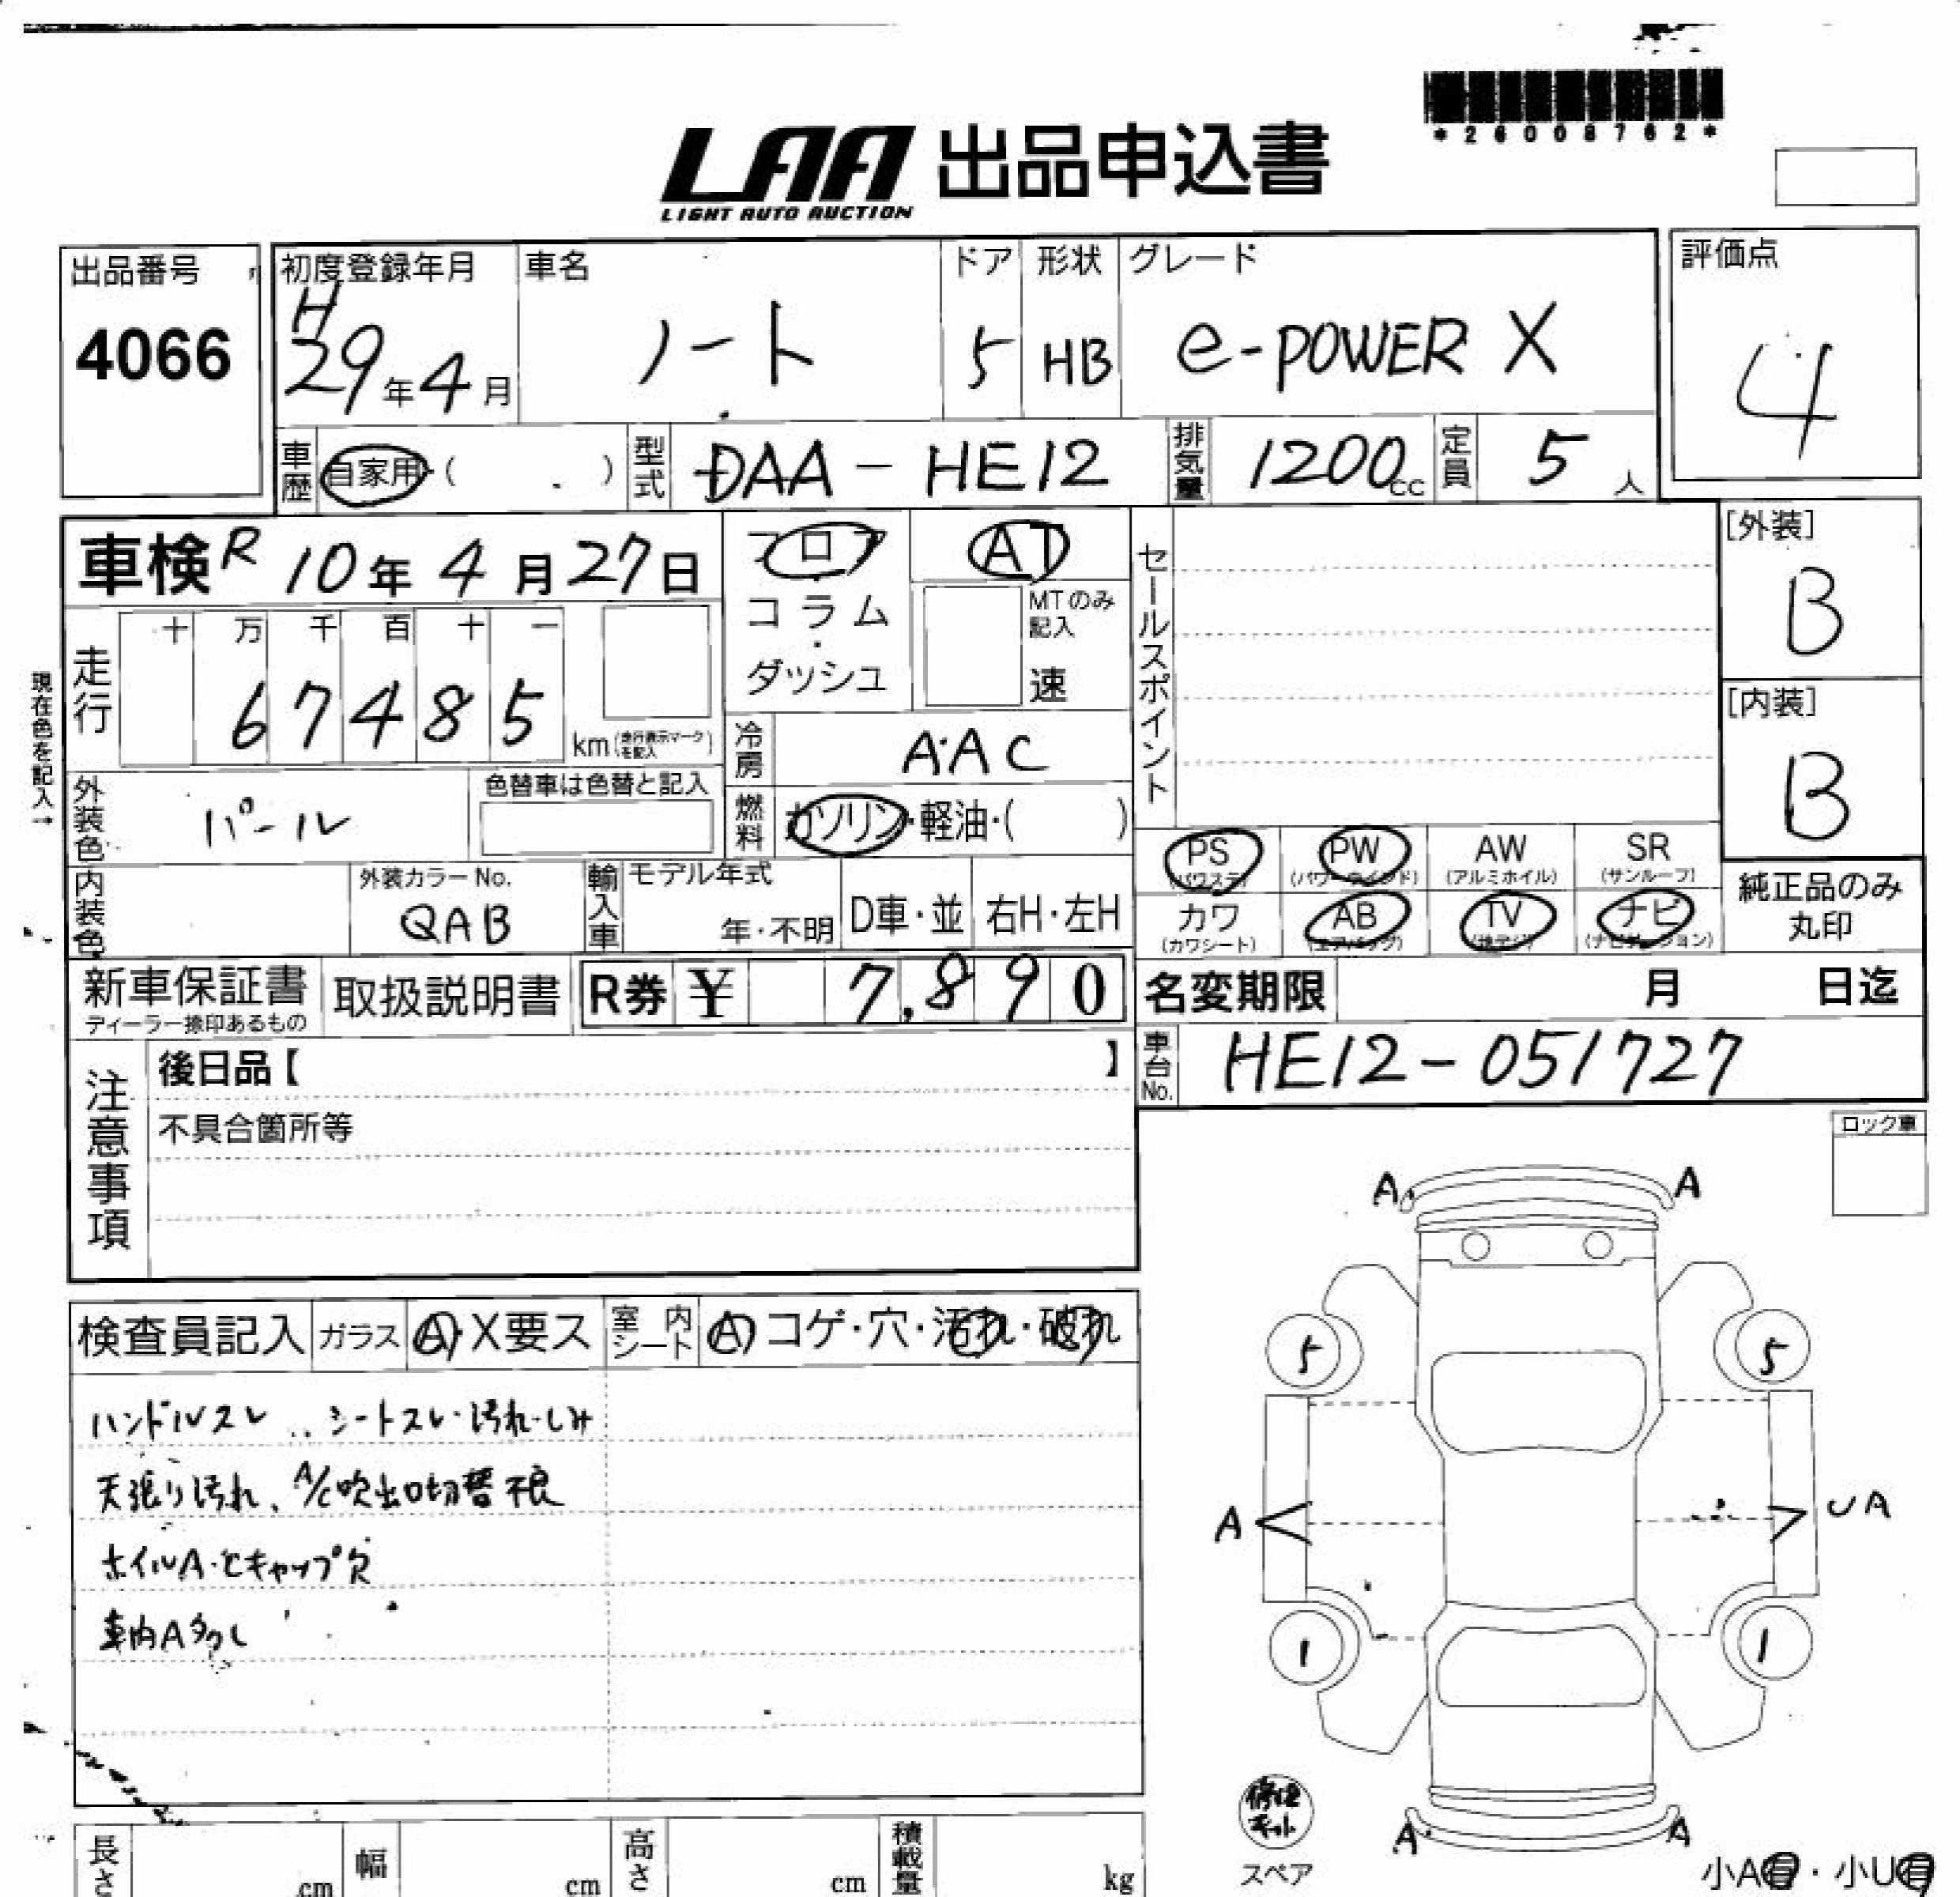 *26008762*
LAA 出品申込書
LIGHT AUTO AUCTION
出品番号
4066
初度登録年月
H
29年4月
車名
ノート
ドア
5
形状
HB
グレード
e-POWER X
評価点
4
車歴
自家用・( )
型式
DAA-HE12
排気量
1200cc
定員
5人
車検 R 10年 4月 27日
フロア
・
コラム
・
ダッシュ
AT
MTのみ記入
速
セールスポイント
[外装]
B
[内装]
B
現在色を記入→
走行
十 万 千 百 十 一
6 7 4 8 5
km(走行表示マークを記入)
冷房
AAC
外装色
パール
色替車は色替と記入
燃料
ガソリン・軽油・( )
内装色
外装カラーNo.
QAB
輸入車
モデル年式
年・不明
D車・並
右H・左H
PS
(パワステ)
PW
(パワーウインド)
AW
(アルミホイル)
SR
(サンルーフ)
カワ
(カワシート)
AB
(エアバッグ)
TV
(地デジ)
ナビ
(ナビゲーション)
純正品のみ
丸印
新車保証書
ディーラー捺印あるもの
取扱説明書
R券 ¥ 7,890
名変期限 月 日迄
車台No.
HE12-051727
注意事項
後日品【 】
不具合箇所等
ロック車
検査員記入
ガラス
A・X要ス
室内シート
A コゲ・穴・汚れ・破れ
ハンドルスレ シートスレ・汚れ・しみ
天張り汚れ、A/C吹出口切替不良
ホイルA・とキャップ欠
車内A多し
A A
5 5
A UA
1 1
A A
修理キット
スペア
小A有・小U有
長さ cm
幅 cm
高さ cm
積載量 kg